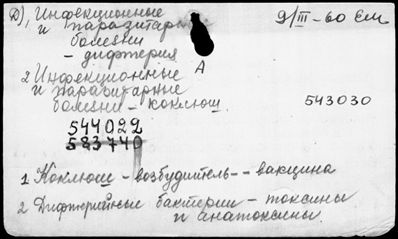 Д), Инфекционные 9/III-60 ЕМ
и паразитарн
болезни
- дифтерия
А
2 Инфекционные
и паразитарные
болезни - коклюш. 543030
544022
583740
1 Коклюш - возбудитель -- вакцина
2 Дифтерийные бактерии - токсины
и анатоксины